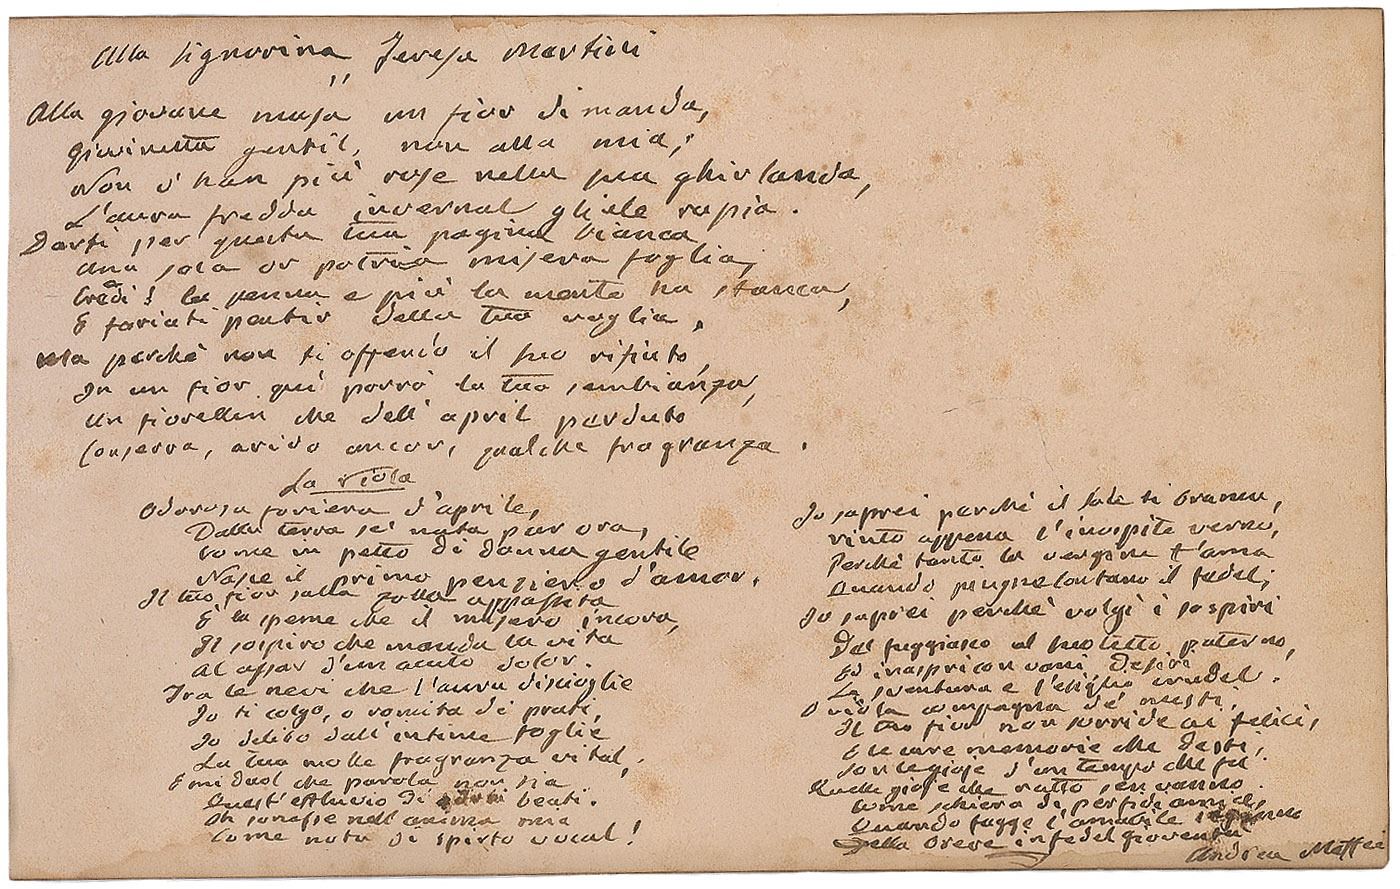 Alla Signorina Teresa Martini
Alla giovane musa un fior dimanda,
Giovinetta gentil, non alla mia;
Non v'han più rose nella sua ghirlanda,
L'aura fredda invernal gliele rapia.
Darti per questa tua pagina bianca
Una sola or potria misera foglia,
Credi! la penna e più la mente ha stanca,
E fariati pentir della tua voglia.
Ma perchè non ti offenda il suo rifiuto,
In un fior quì porrò la tua sembianza,
Un fiorellin che dell'april perduto
Conserva, arido ancor, qualche fragranza.
La viola
Odorosa foriera d'aprile,
Dalla terra se' nata pur ora,
Come in petto di donna gentile
Nasce il primo pensiero d'amor.
Il tuo fior sulla zolla appassita
È la speme che il misero incora,
Il sospiro che manda la vita
Al cessar d'un acuto dolor.
Tra le nevi che l'aura discioglie
Io ti colgo, o romita de' prati,
Io delibo dall'intime foglie
La tua molle fragranza vital,
E mi duol che parola non sia
Quest'effluvio di beati.
Ch sonasse nell'anima mia
Come nota di spirto vocal!
Io saprei perchè il Sole ti brama,
Vinto appena l'inospite verno,
Perchè tanto la vergine t'ama
Quando pugne lontano il fedel;
Io saprei perchè volgi i sospiri
Del fuggiasco al suo tetto paterno,
Ed inaspri con vani desiri
La sventura e l'esiglio crudel.
O viola compagna de' mesti,
Il tuo fior non sorride ai felici,
E le care memorie che desti,
Son le gioje d'un tempo che fu.
Quelle gioje che ratto sen vanno
Come schiera di perfidi amici,
Quando fugge l'amabile inganno
Della breve infedel gioventù
Andrea Maffei